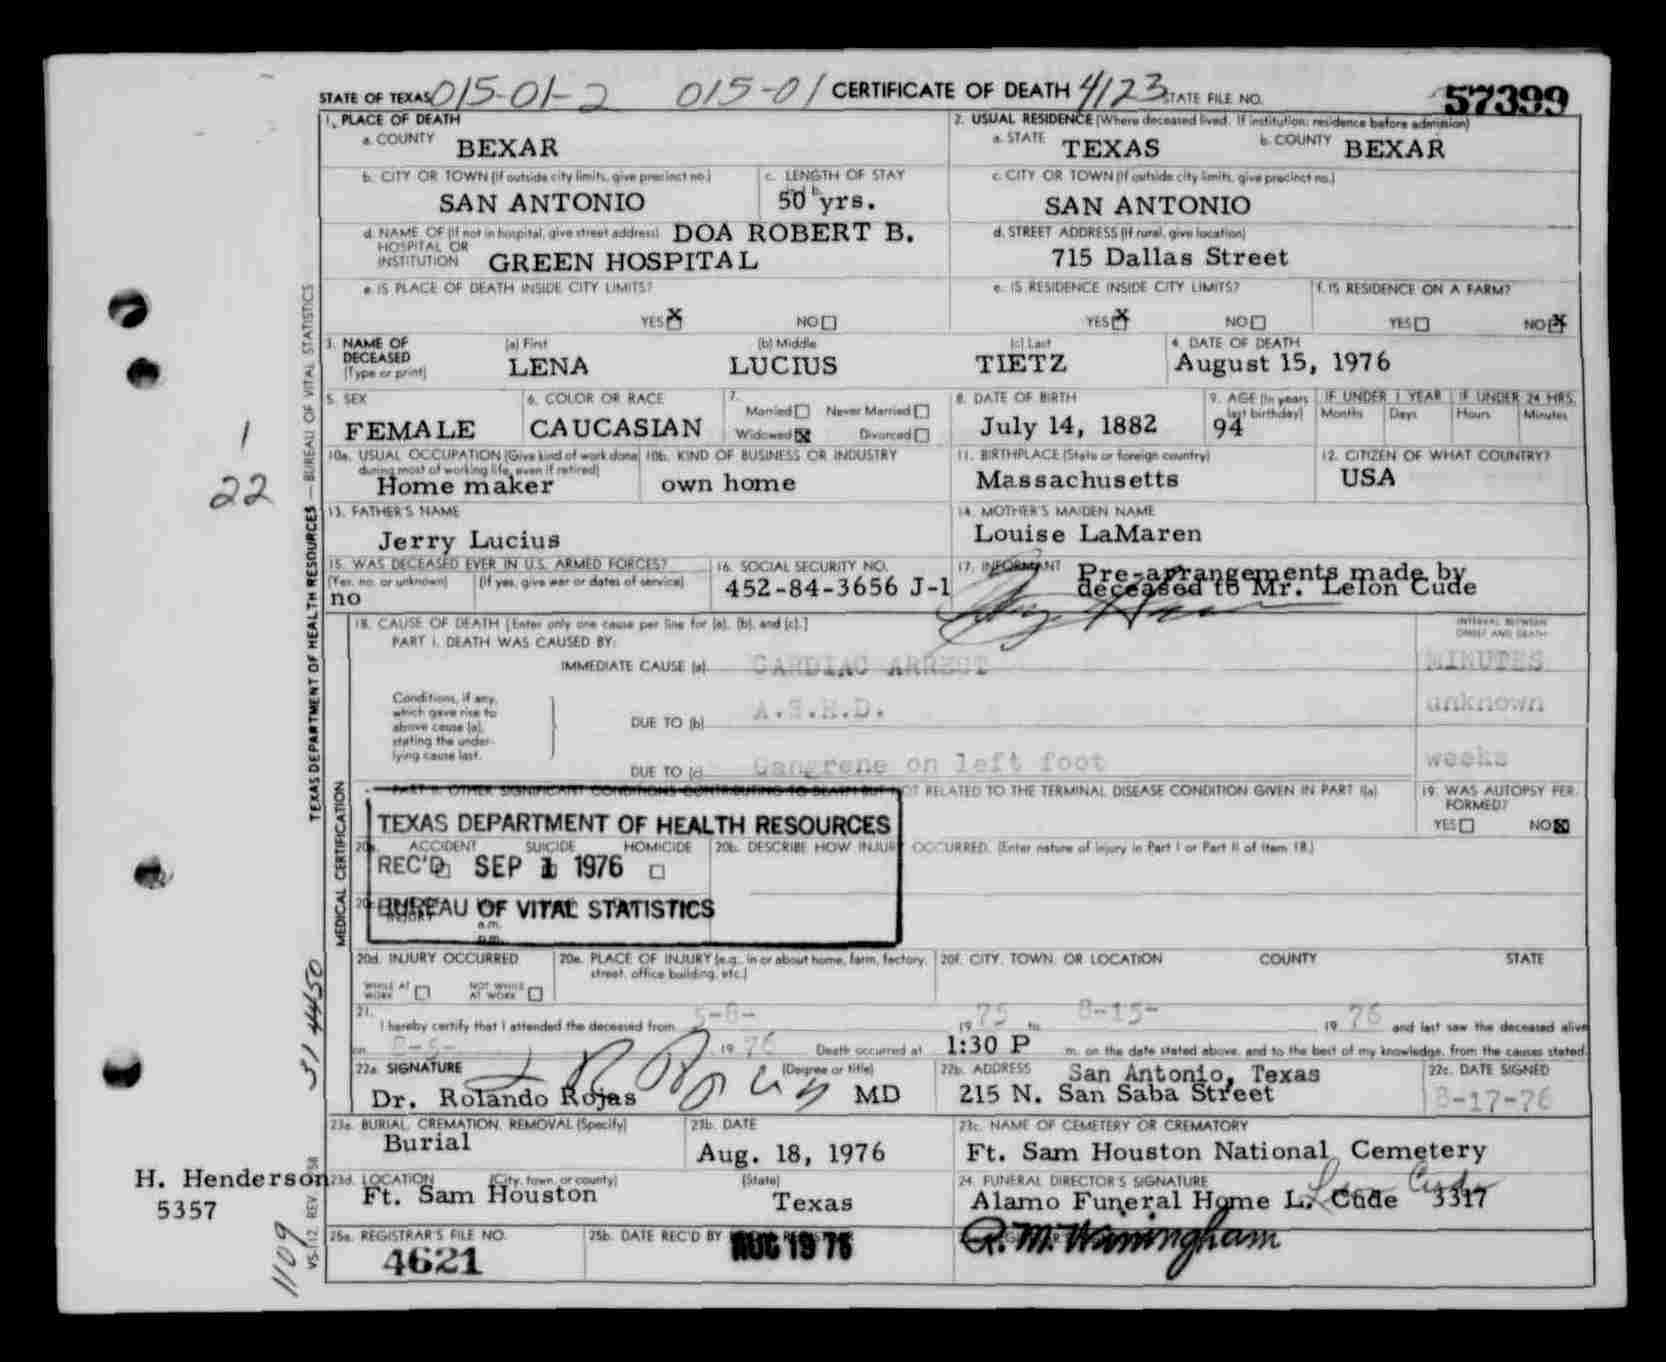 STATE OF TEXAS 015-01-2 015-01 CERTIFICATE OF DEATH 4123 STATE FILE NO. 57399
1. PLACE OF DEATH
a. COUNTY BEXAR
2. USUAL RESIDENCE (Where deceased lived. If institution: residence before admission)
a. STATE TEXAS b. COUNTY BEXAR
b. CITY OR TOWN (If outside city limits, give precinct no.) SAN ANTONIO
c. LENGTH OF STAY 50 yrs.
c. CITY OR TOWN (If outside city limits, give precinct no.) SAN ANTONIO
d. NAME OF (If not in hospital, give street address) DOA ROBERT B.
HOSPITAL OR
INSTITUTION GREEN HOSPITAL
d. STREET ADDRESS (If rural, give location)
715 Dallas Street
e. IS PLACE OF DEATH INSIDE CITY LIMITS?
YES X NO
e. IS RESIDENCE INSIDE CITY LIMITS?
YES X NO
f. IS RESIDENCE ON A FARM?
YES NO X
3. NAME OF DECEASED (Type or print)
(a) First LENA (b) Middle LUCIUS (c) Last TIETZ
4. DATE OF DEATH August 15, 1976
5. SEX FEMALE
6. COLOR OR RACE CAUCASIAN
7. Married Never Married
Widowed X Divorced
8. DATE OF BIRTH July 14, 1882
9. AGE (In years last birthday) 94
IF UNDER 1 YEAR Months Days
IF UNDER 24 HRS. Hours Minutes
10a. USUAL OCCUPATION (Give kind of work done during most of working life, even if retired)
Home maker
10b. KIND OF BUSINESS OR INDUSTRY
own home
11. BIRTHPLACE (State or foreign country)
Massachusetts
12. CITIZEN OF WHAT COUNTRY?
USA
13. FATHER'S NAME
Jerry Lucius
14. MOTHER'S MAIDEN NAME
Louise LaMaren
15. WAS DECEASED EVER IN U.S. ARMED FORCES?
(Yes, no, or unknown) (If yes, give war or dates of service)
no
16. SOCIAL SECURITY NO.
452-84-3656 J-1
17. INFORMANT Pre-arrangements made by
deceased to Mr. Lelon Cude
18. CAUSE OF DEATH [Enter only one cause per line for (a), (b), and (c).]
PART I. DEATH WAS CAUSED BY:
INTERVAL BETWEEN ONSET AND DEATH
IMMEDIATE CAUSE (a) CARDIAC ARREST MINUTES
Conditions, if any, which gave rise to above cause (a), stating the underlying cause last.
DUE TO (b) A.S.H.D. unknown
DUE TO (c) Gangrene on left foot weeks
PART II. OTHER SIGNIFICANT CONDITIONS CONTRIBUTING TO DEATH BUT NOT RELATED TO THE TERMINAL DISEASE CONDITION GIVEN IN PART I(a)
19. WAS AUTOPSY PERFORMED?
YES NO X
TEXAS DEPARTMENT OF HEALTH RESOURCES
REC'D SEP 1 1976
BUREAU OF VITAL STATISTICS
20a. ACCIDENT SUICIDE HOMICIDE
20b. DESCRIBE HOW INJURY OCCURRED. (Enter nature of injury in Part I or Part II of Item 18.)
INJURY a.m.
p.m.
20d. INJURY OCCURRED
WHILE AT WORK NOT WHILE AT WORK
20e. PLACE OF INJURY (e.g., in or about home, farm, factory, street, office building, etc.)
20f. CITY, TOWN, OR LOCATION COUNTY STATE
21. I hereby certify that I attended the deceased from 5-8- 19 75 to 8-15- 19 76 and last saw the deceased alive
on 8-5- 19 76 Death occurred at 1:30 P m. on the date stated above, and to the best of my knowledge, from the causes stated.
22a. SIGNATURE (Degree or title)
Dr. Rolando Rojas MD
22b. ADDRESS San Antonio, Texas
215 N. San Saba Street
22c. DATE SIGNED
8-17-76
23a. BURIAL, CREMATION, REMOVAL (Specify)
Burial
23b. DATE
Aug. 18, 1976
23c. NAME OF CEMETERY OR CREMATORY
Ft. Sam Houston National Cemetery
23d. LOCATION (City, town, or county) (State)
Ft. Sam Houston Texas
24. FUNERAL DIRECTOR'S SIGNATURE
Alamo Funeral Home L. Cude 3317
25a. REGISTRAR'S FILE NO.
4621
25b. DATE REC'D BY
AUG 19 76
R. M. Winingham
H. Henderson
5357
1
22
TEXAS DEPARTMENT OF HEALTH RESOURCES — BUREAU OF VITAL STATISTICS
MEDICAL CERTIFICATION
31 4450
1109
VS-112 REV.